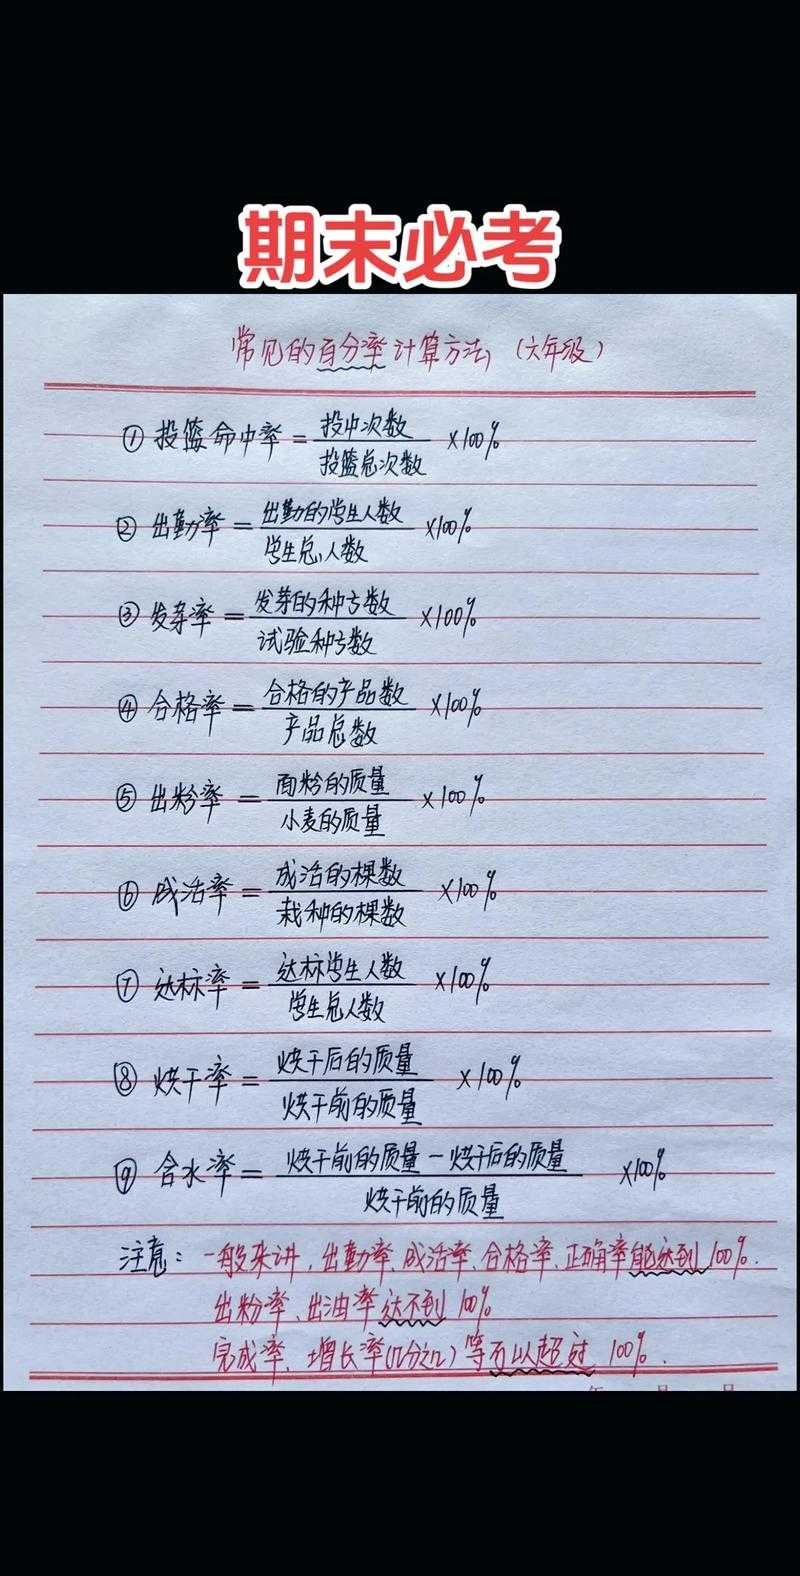 期末必考
常见的百分率计算方法（六年级）
① 投篮命中率 = 投中次数/投篮总次数 ×100%
② 出勤率 = 出勤的学生人数/学生总人数 ×100%
③ 发芽率 = 发芽的种子数/试验种子数 ×100%
④ 合格率 = 合格的产品数/产品总数 ×100%
⑤ 出粉率 = 面粉的质量/小麦的质量 ×100%
⑥ 成活率 = 成活的棵数/栽种的棵数 ×100%
⑦ 达标率 = 达标学生人数/学生总人数 ×100%
⑧ 烘干率 = 烘干后的质量/烘干前的质量 ×100%
⑨ 含水率 = 烘干前的质量－烘干后的质量/烘干前的质量 ×100%
注意：一般来讲，出勤率、成活率、合格率、正确率能达到100%.
出粉率、出油率达不到100%
完成率、增长率(几分之几)等可以超过100%.